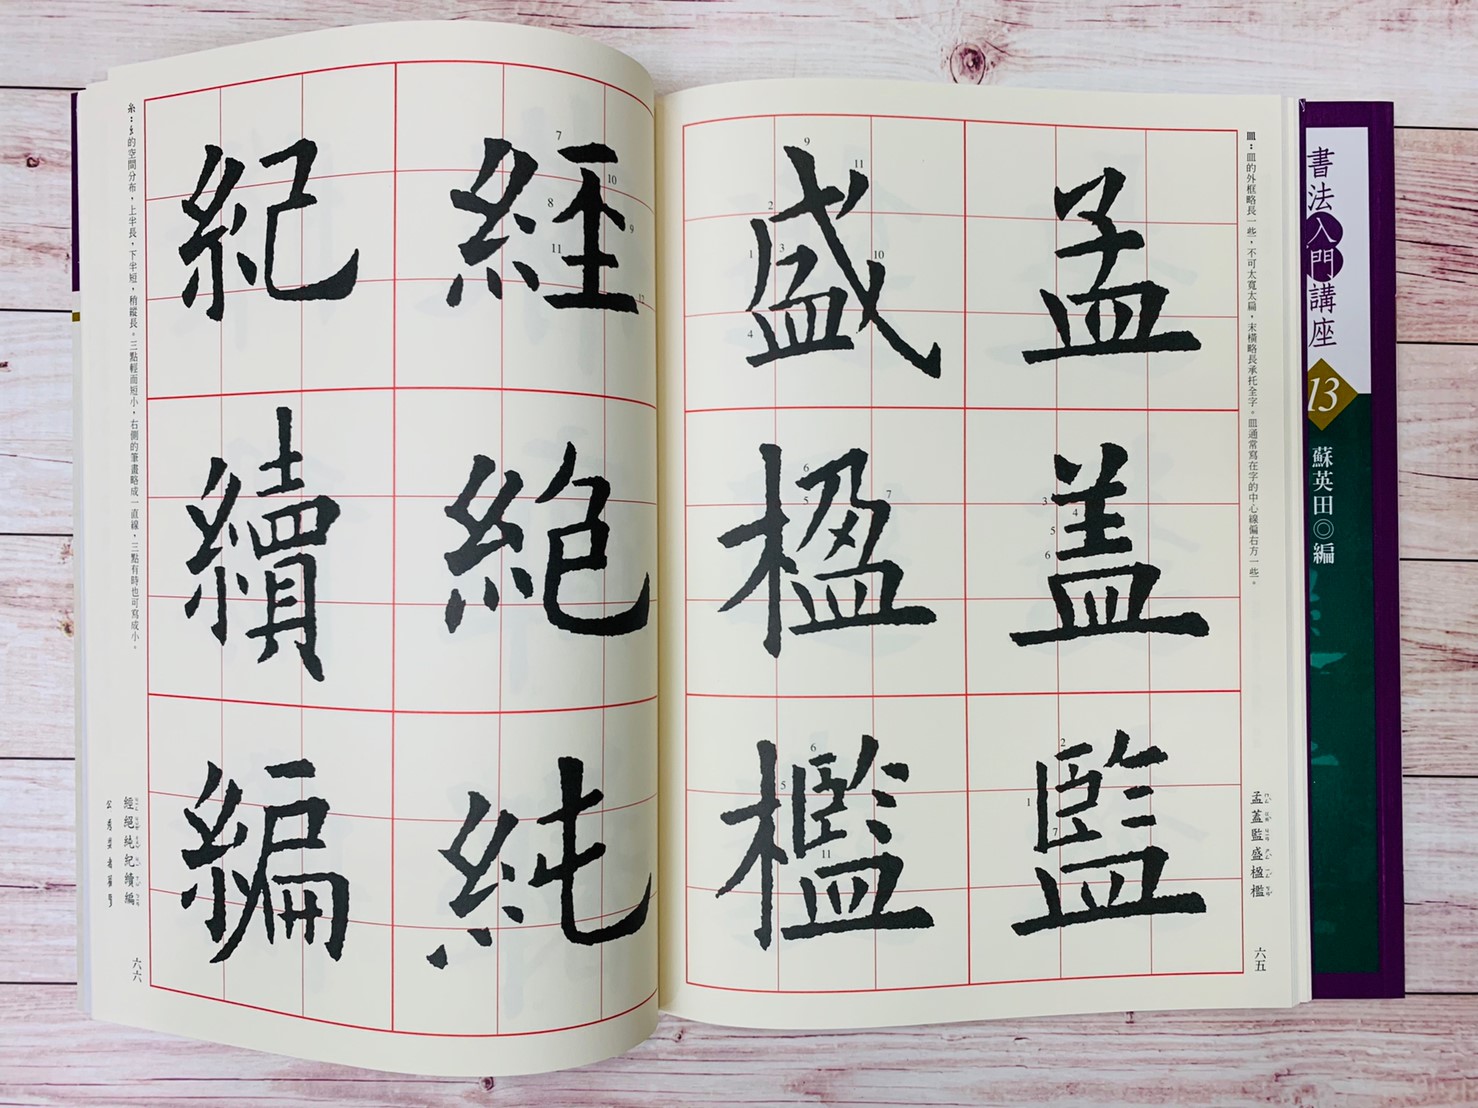 書法入門講座
13
蘇英田◎編
皿：皿的外框略長一些，不可太寬太扁，末橫略長承托全字。皿通常寫在字的中心線偏右方一些。
孟 蓋 監
盛 楹 檻
孟蓋監盛楹檻
六五
經 絕 純
紀 續 編
糸：糹的空間分布，上半長，下半短，稍縱長。三點輕而短小，右側的筆畫略成一直線，三點有時也可寫成小。
經絕純紀續編
六六